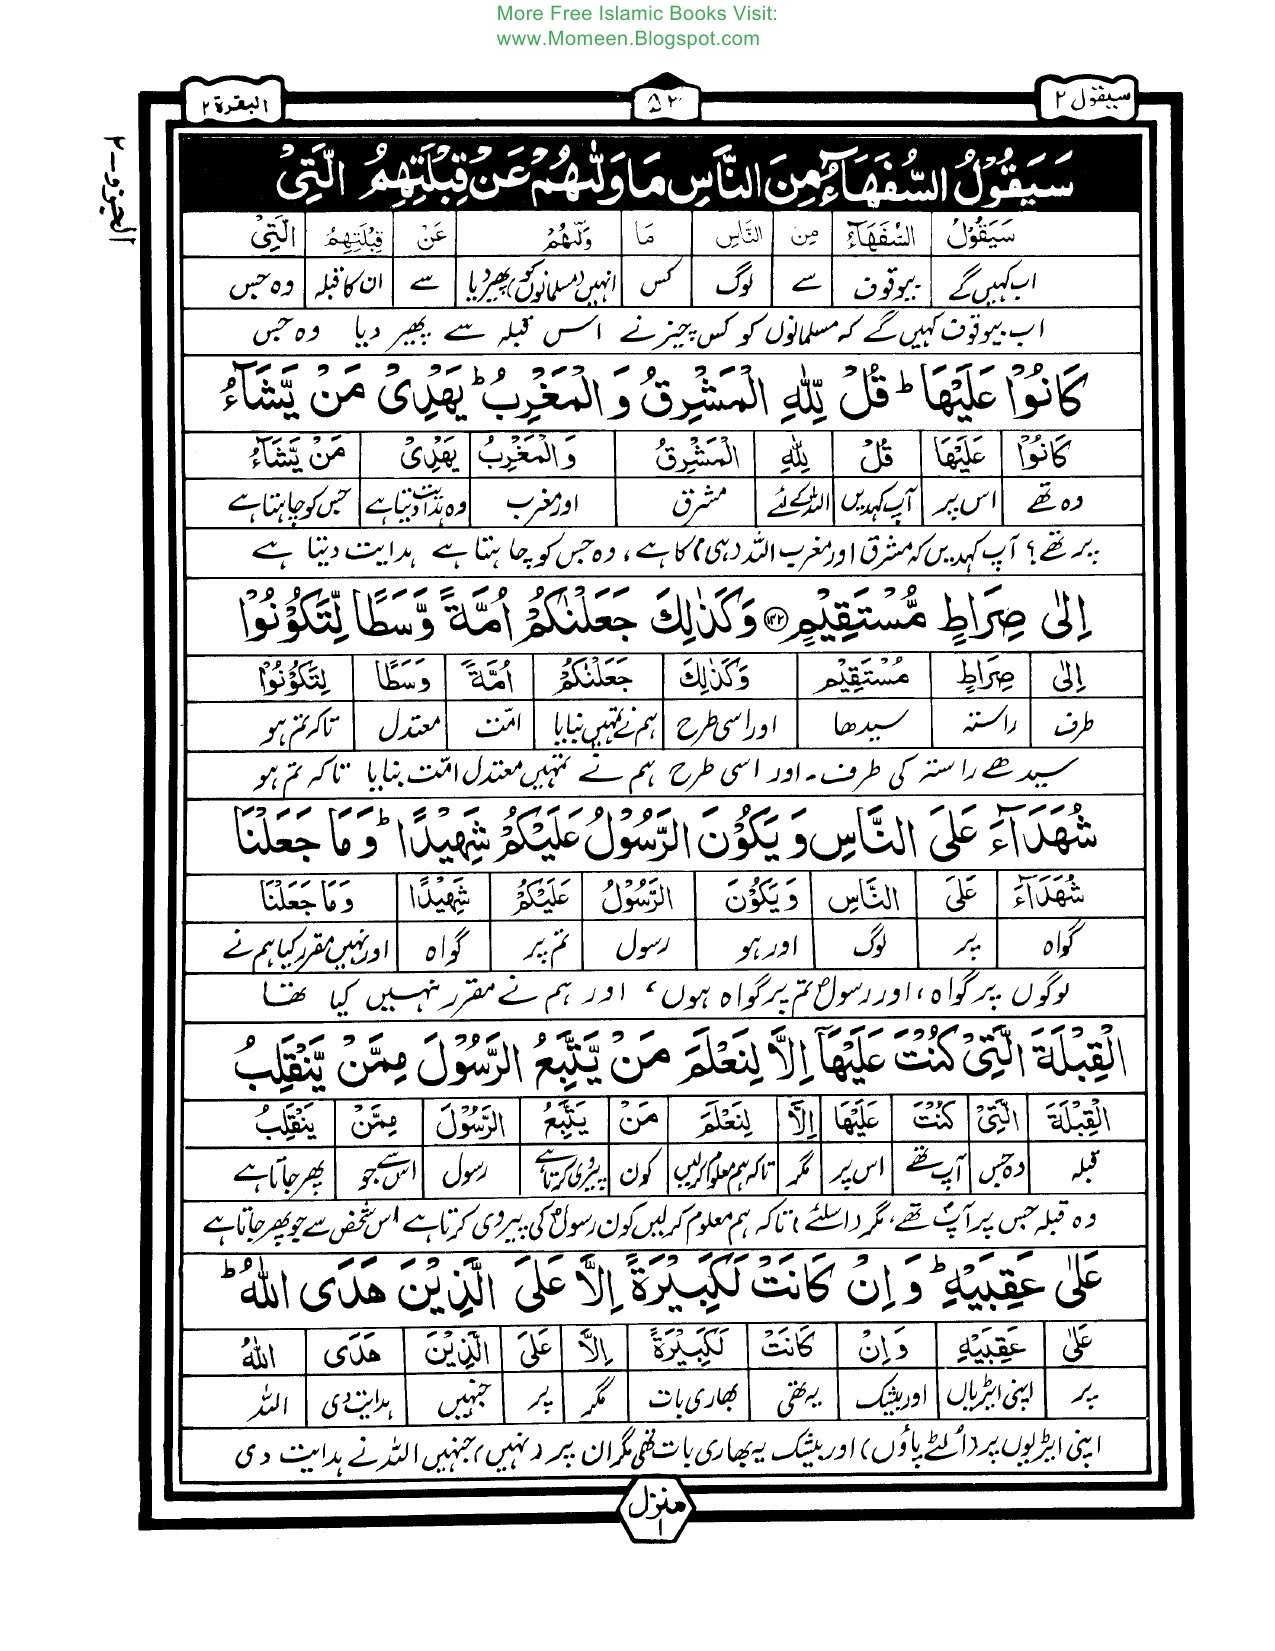 More Free Islamic Books Visit:
www.Momeen.Blogspot.com
سیقول ۲
۵۲
البقرة ۲
الجزء - ۲
سَيَقُوْلُ السُّفَهَآءُ مِنَ النَّاسِ مَا وَلّٰىهُمْ عَنْ قِبْلَتِهِمُ الَّتِيْ
سَيَقُوْلُ السُّفَهَآءُ مِنَ النَّاسِ مَا وَلّٰىهُمْ عَنْ قِبْلَتِهِمُ الَّتِيْ
اب کہیں گے بیوقوف سے لوگ کس انہیں (مسلمانوں کو) پھیر دیا سے ان کا قبلہ وہ جس
اب بیوقوف کہیں گے کہ مسلمانوں کو کس چیز نے اس قبلہ سے پھیر دیا وہ جس
كَانُوْا عَلَيْهَا ؕ قُلْ لِّلّٰهِ الْمَشْرِقُ وَ الْمَغْرِبُ ؕ يَهْدِىْ مَنْ يَّشَآءُ
كَانُوْا عَلَيْهَا قُلْ لِلّٰهِ الْمَشْرِقُ وَالْمَغْرِبُ يَهْدِىْ مَنْ يَّشَآءُ
وہ تھے اس پر آپ کہدیں اللہ کے لئے مشرق اور مغرب وہ ہدایت دیتا ہے جس کو چاہتا ہے
پر تھے؟ آپ کہدیں کہ مشرق اور مغرب اللہ (ہی) کا ہے، وہ جس کو چاہتا ہے ہدایت دیتا ہے
اِلٰى صِرَاطٍ مُّسْتَقِيْمٍ ﴿۱۴۲﴾ وَكَذٰلِكَ جَعَلْنٰكُمْ اُمَّةً وَّسَطًا لِّتَكُوْنُوْا
اِلٰى صِرَاطٍ مُسْتَقِيْمٍ وَكَذٰلِكَ جَعَلْنٰكُمْ اُمَّةً وَسَطًا لِتَكُوْنُوْا
طرف راستہ سیدھا اور اسی طرح ہم نے تمہیں بنایا امّت معتدل تاکہ تم ہو
سیدھے راستہ کی طرف۔ اور اسی طرح ہم نے تمہیں معتدل امّت بنایا تاکہ تم ہو
شُهَدَآءَ عَلَى النَّاسِ وَ يَكُوْنَ الرَّسُوْلُ عَلَيْكُمْ شَهِيْدًا ؕ وَ مَا جَعَلْنَا
شُهَدَآءَ عَلَى النَّاسِ وَ يَكُوْنَ الرَّسُوْلُ عَلَيْكُمْ شَهِيْدًا وَمَا جَعَلْنَا
گواہ پر لوگ اور ہو رسول تم پر گواہ اور نہیں مقرر کیا ہم نے
لوگوں پر گواہ، اور رسولؐ تم پر گواہ ہوں، اور ہم نے مقرر نہیں کیا تھا
الْقِبْلَةَ الَّتِيْ كُنْتَ عَلَيْهَآ اِلَّا لِنَعْلَمَ مَنْ يَّتَّبِعُ الرَّسُوْلَ مِمَّنْ يَّنْقَلِبُ
الْقِبْلَةَ الَّتِيْ كُنْتَ عَلَيْهَا اِلَّا لِنَعْلَمَ مَنْ يَتَّبِعُ الرَّسُوْلَ مِمَّنْ يَنْقَلِبُ
قبلہ وہ جس آپ تھے اس پر مگر تاکہ ہم معلوم کرلیں کون پیروی کرتا ہے رسول اس سے جو پھر جاتا ہے
وہ قبلہ جس پر آپؐ تھے، مگر (اسلئے) تاکہ ہم معلوم کرلیں کون رسولؐ کی پیروی کرتا ہے اس شخص سے جو پھر جاتا ہے
عَلٰى عَقِبَيْهِ ؕ وَ اِنْ كَانَتْ لَكَبِيْرَةً اِلَّا عَلَى الَّذِيْنَ هَدَى اللّٰهُ ؕ
عَلٰى عَقِبَيْهِ وَ اِنْ كَانَتْ لَكَبِيْرَةً اِلَّا عَلَى الَّذِيْنَ هَدَى اللّٰهُ
پر اپنی ایڑیاں اور بیشک یہ تھی بھاری بات مگر پر جنہیں ہدایت دی اللہ
اپنی ایڑیوں پر (الٹے پاؤں) اور بیشک یہ بھاری بات تھی مگر ان پر (نہیں) جنہیں اللہ نے ہدایت دی
منزل
۱